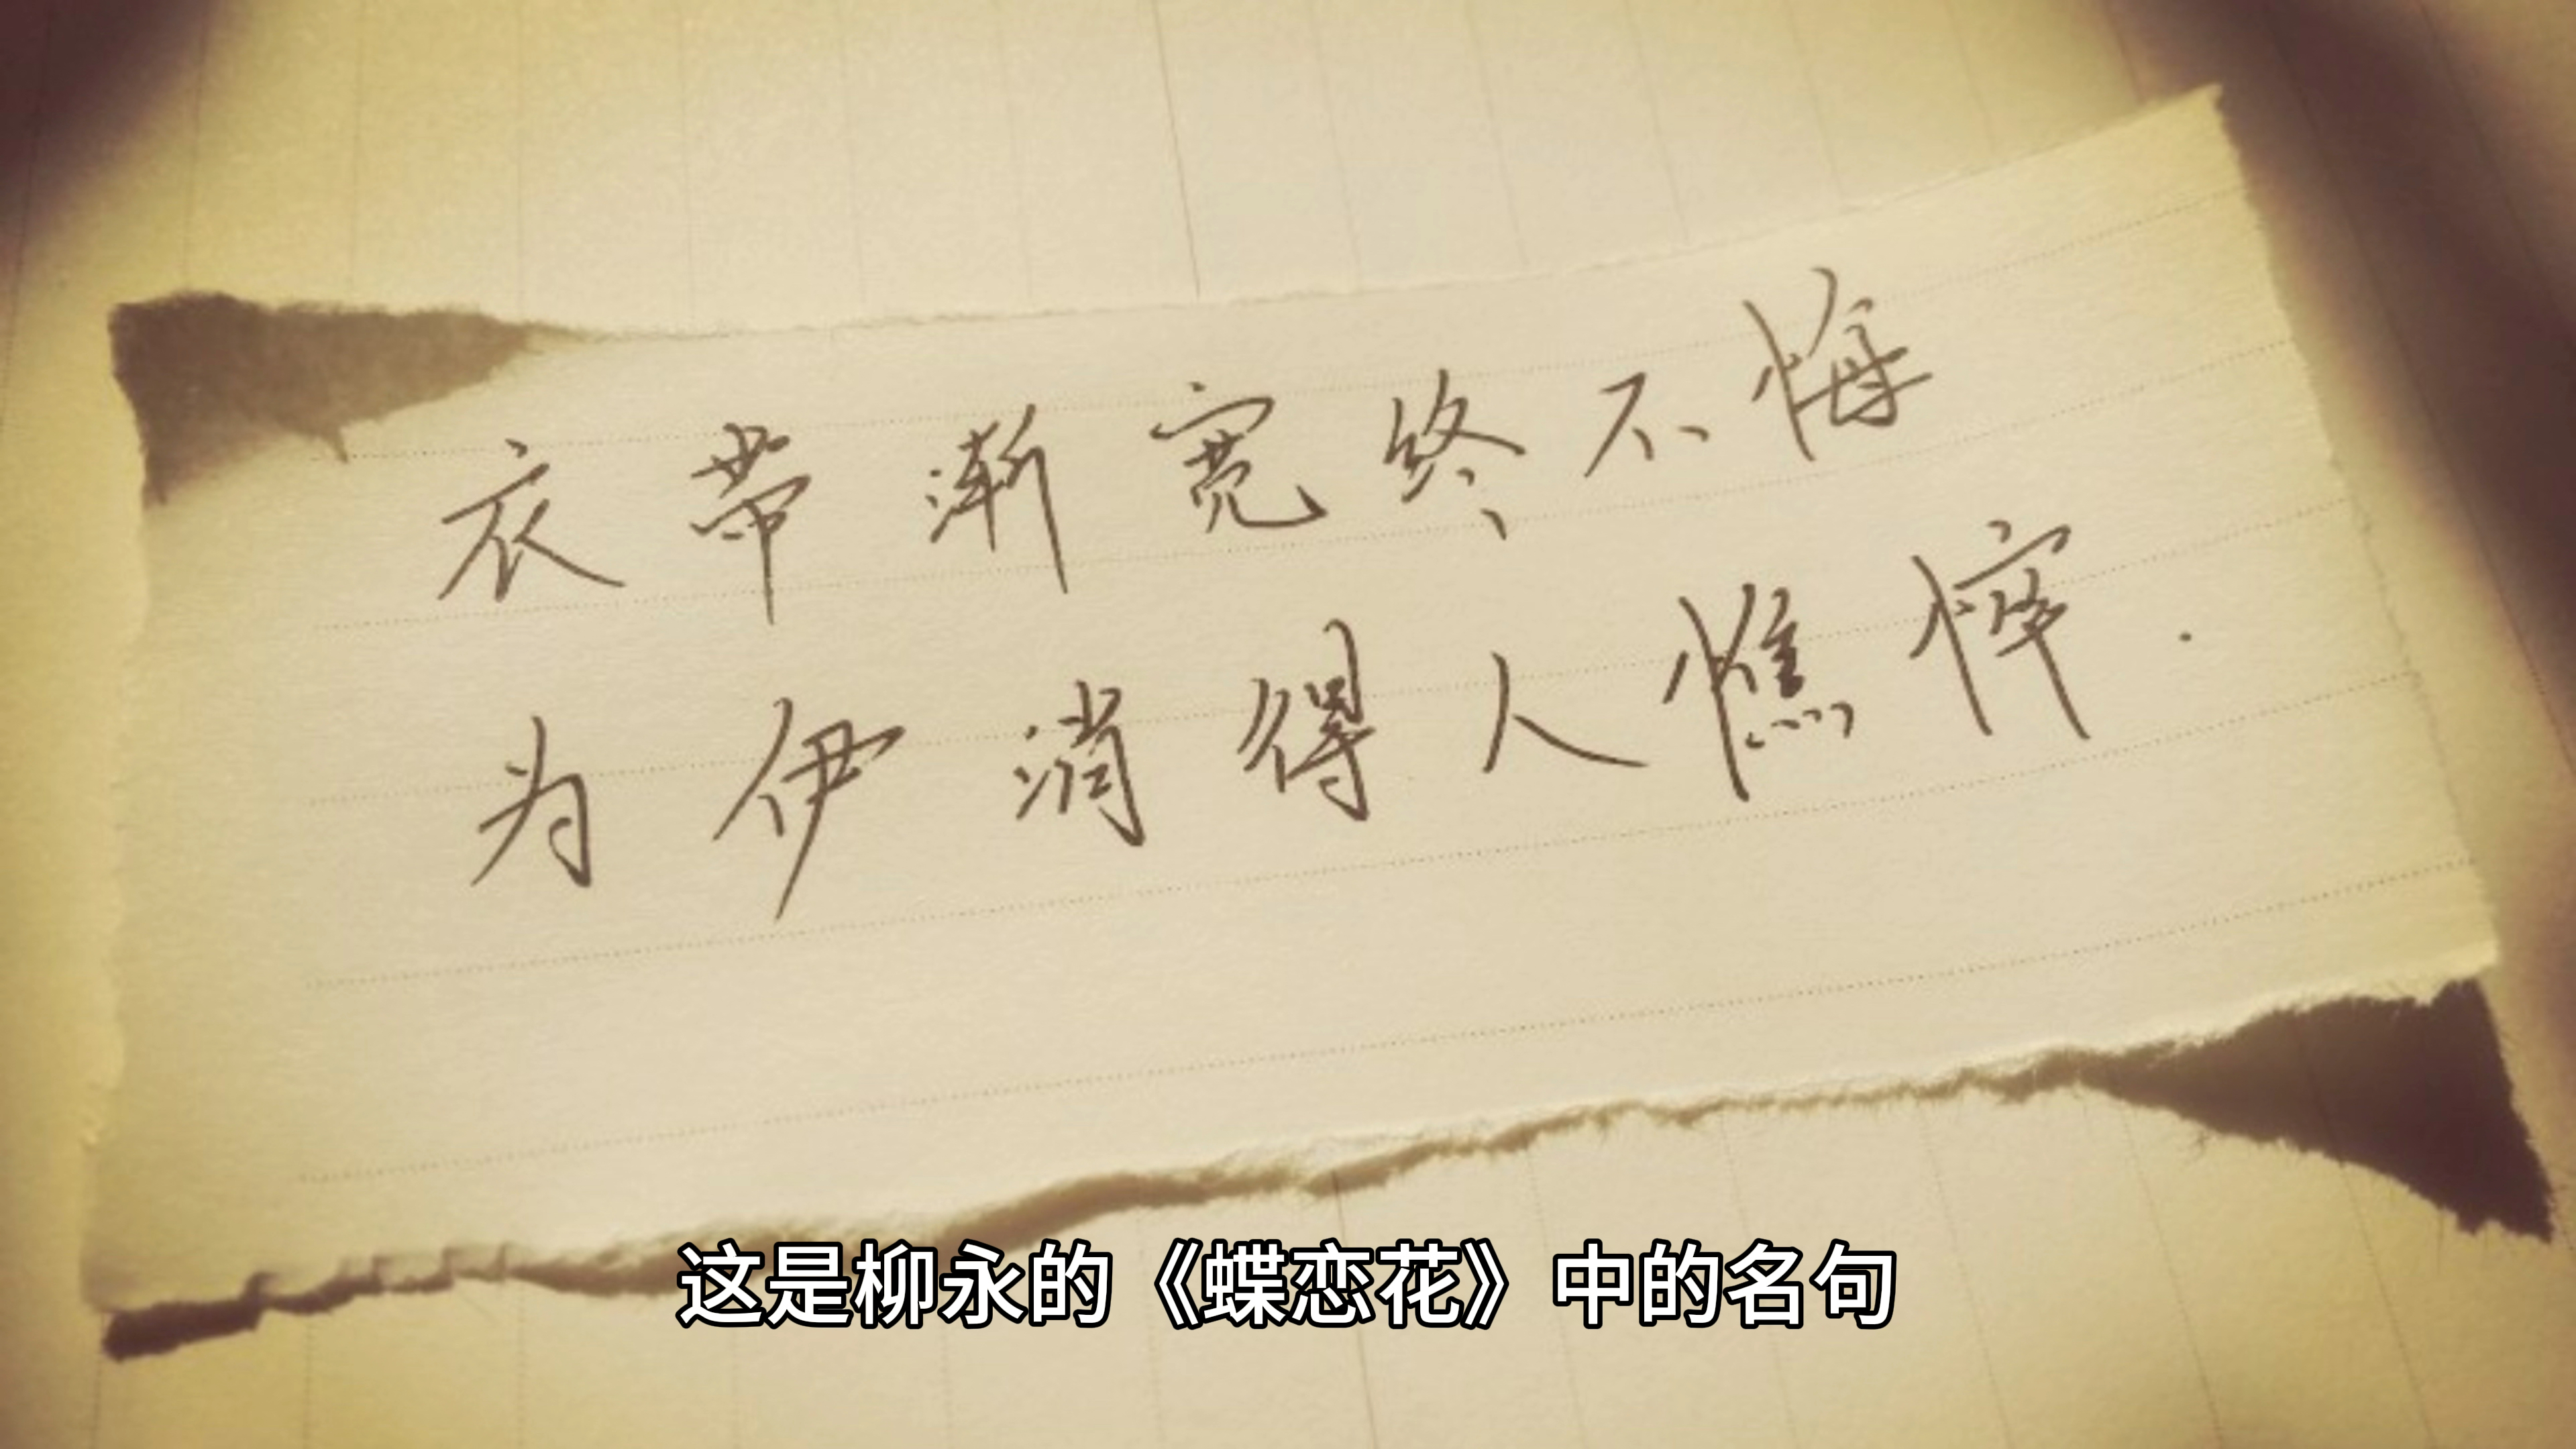 衣带渐宽终不悔
为伊消得人憔悴.
这是柳永的《蝶恋花》中的名句